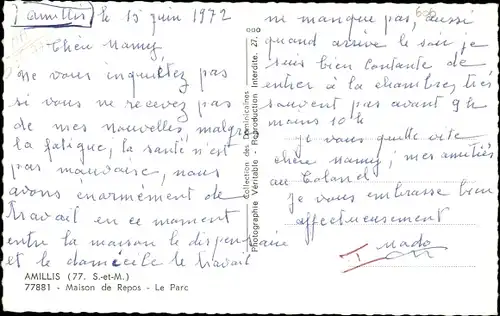 Amillis le 15 juin 1972
Chère Mamy
Ne vous inquiétez pas
si vous ne recevez pas
de mes nouvelles malgré
la fatigue, la santé n'est
pas mauvaise, nous
avons énormément de
travail en ce moment
entre la maison le dispensaire
et le domicile le travail
AMILLIS (77. S.-et-M.)
77881 - Maison de Repos - Le Parc
Collection des Dominicaines
Photographie Véritable - Reproduction Interdite. 27.
ne manque pas, aussi
quand arrive le soir je
suis bien contente de
rentrer à la chambre, très
souvent pas avant 9h
moins 10h
je vous quitte vite
chère Mamy; mes amitiés
au
je vous embrasse bien
affectueusement
Mado